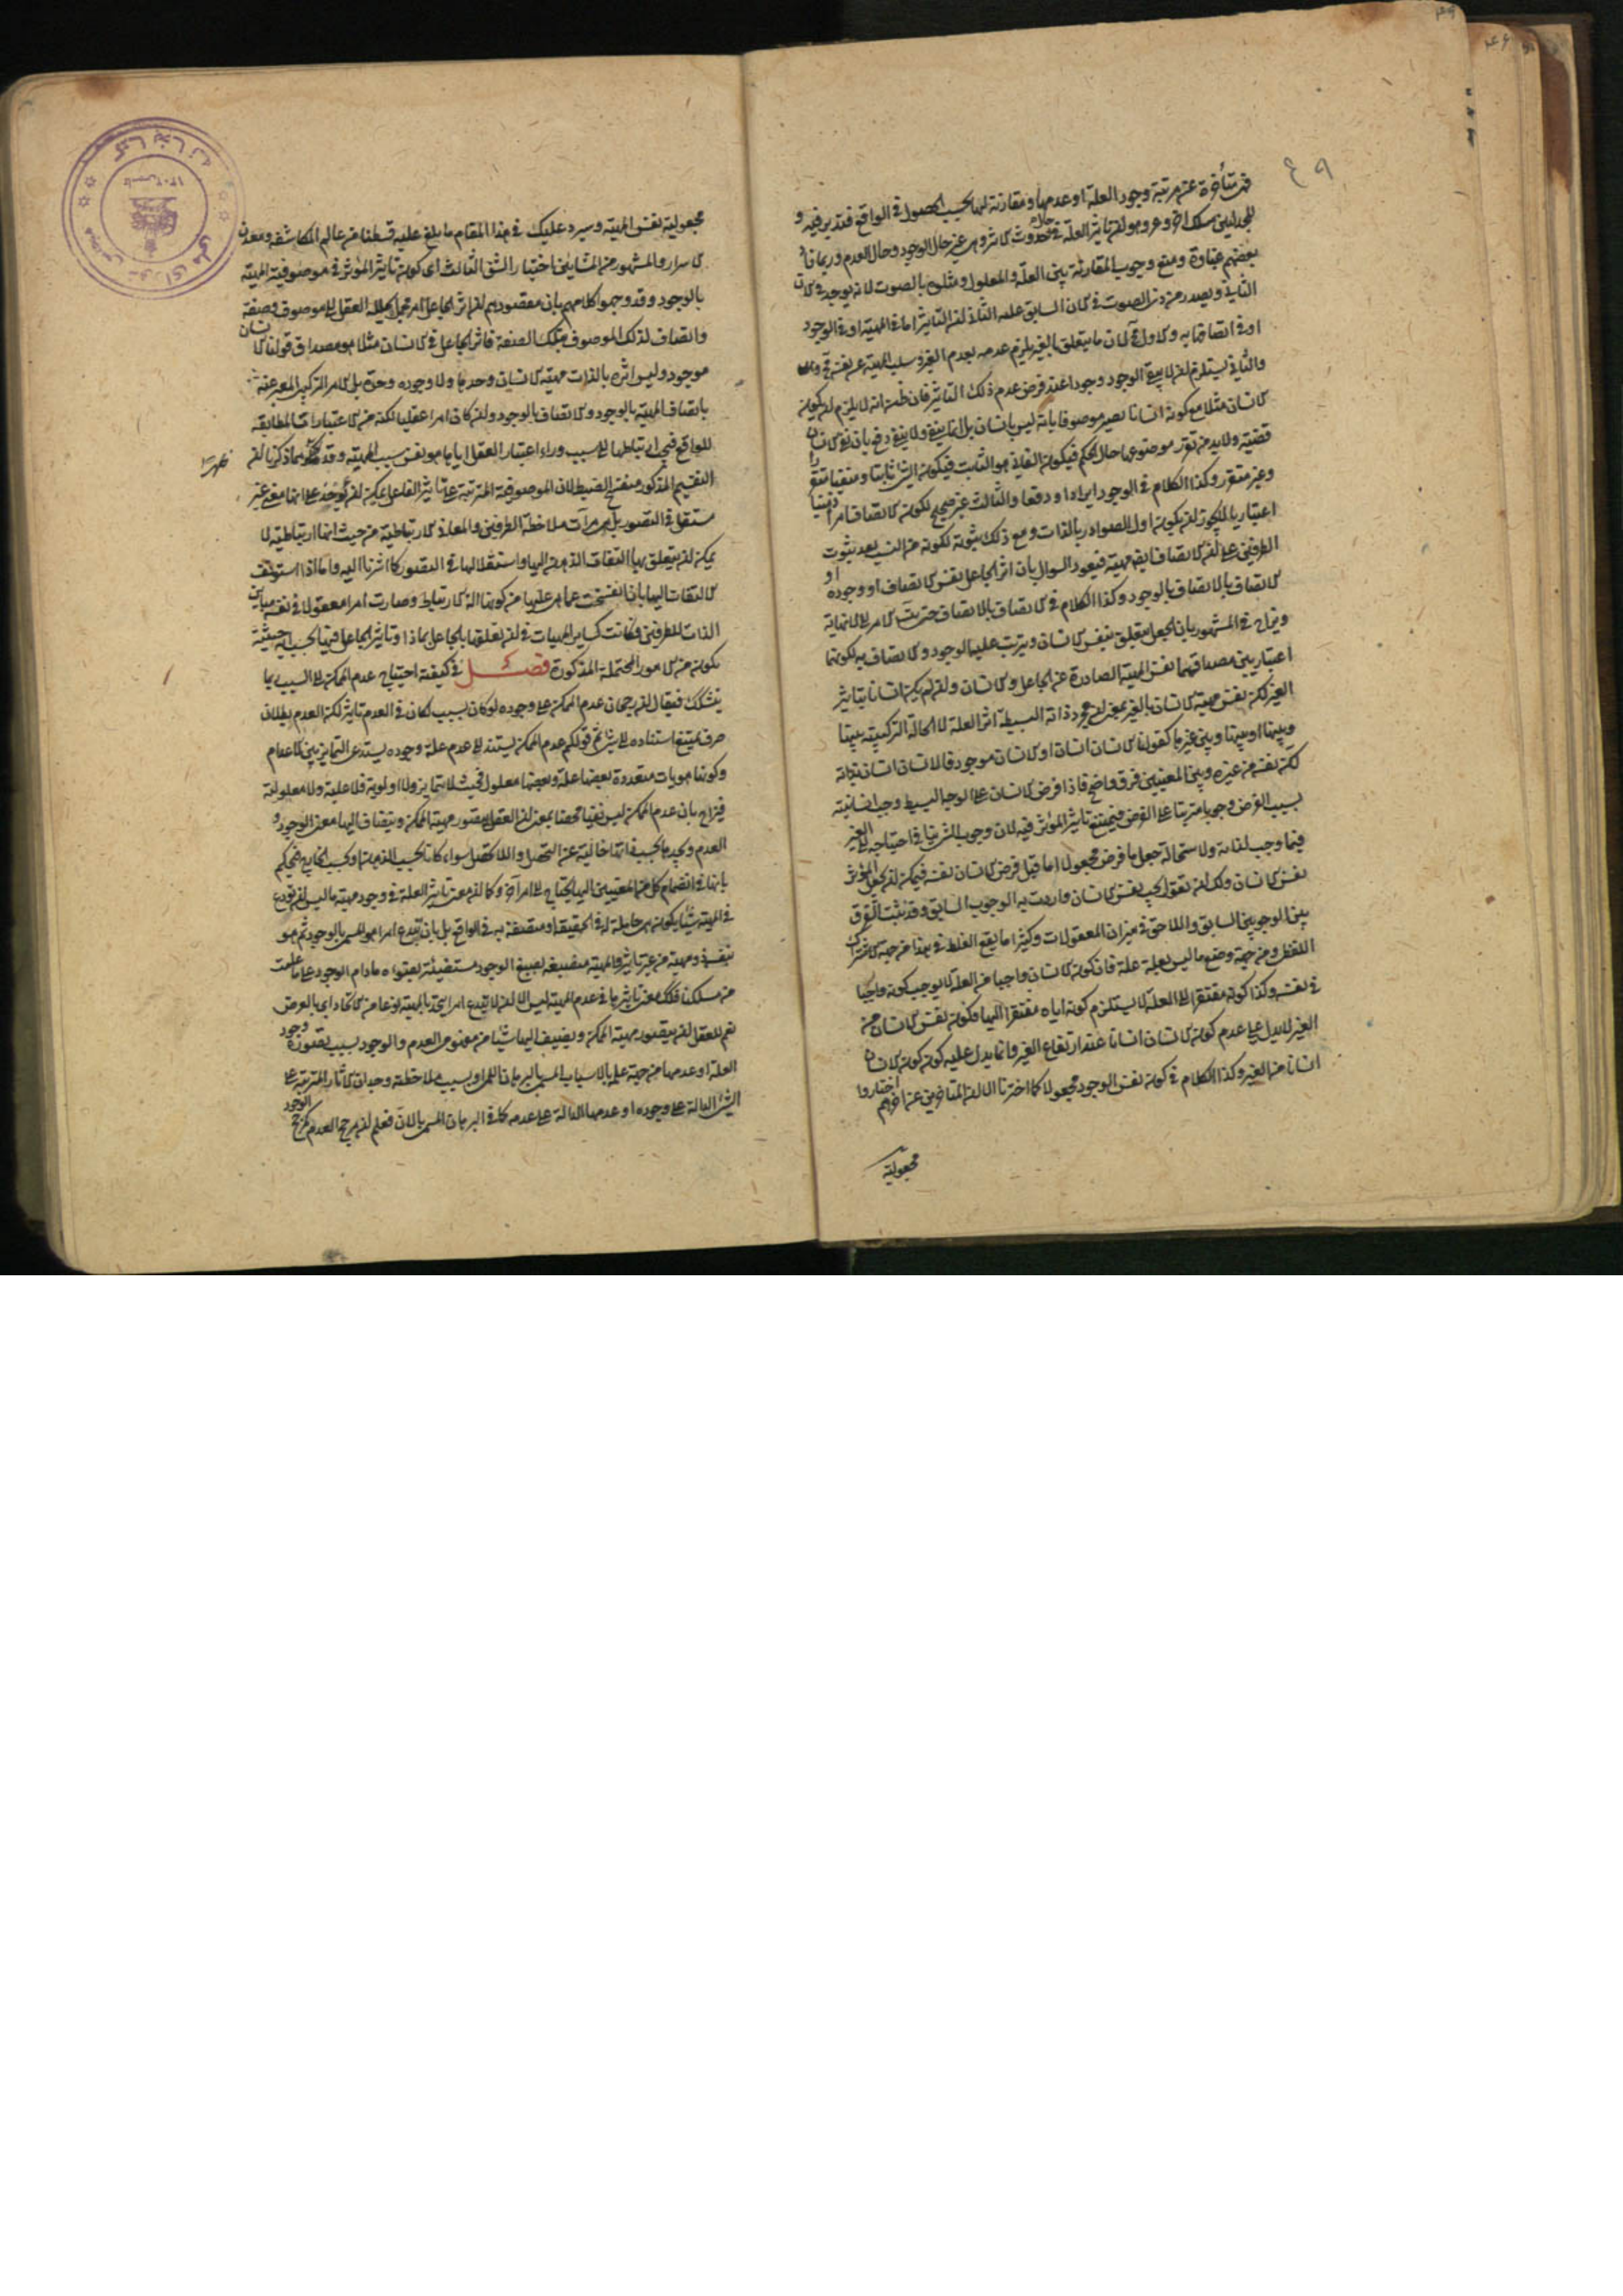 ٤٩
فهي متأخرة عن مرتبة وجود العلة او عدمها ومقارنة لهما بحسب الحصول في الواقع فتدبر فيه و
للجدليين مسلك اخر وعر وهو ان تأثير العلة في حال حدوث الاثر وهي غير حال الوجود وحال العدم وربما زاد
بعضهم غباوة ومنع وجوب المقارنة بين العلة والمعلول ومثلوه بالصوت لانه يوجد في الان
الثاني ويصدر من ذي الصوت في الان السابق عليه الثاني ان التأثير اما في المهية او في الوجود
او في اتصافها به والاول محال لان ما يتعلق بالغير يلزم عدمه بعدم الغير وسلب المهية عن نفسها محال
والثاني يستلزم ان لا يبقى الوجود وجودا عند فرض عدم ذلك التأثير فان ظن انه لا يلزم ان يكون
الانسان مثلا مع كونه انسانا يصير موصوفا بانه ليس بانسان بل انما ينفى ولا يبقى دفع بان نفي الانسان
قضية ولا بد من تقرر موضوعها حال الحكم فيكون الفاني هو الثابت فيكون الشئ ثابتا ومنفيا متقررا
وغير متقرر وكذا الكلام في الوجود ايرادا ودفعا والثالث غير صحيح لكون الاتصاف امرا ذهنيا
اعتباريا لا يجوز ان يكون اول الصوادر بالذات ومع ذلك ثبوته لكونه من النسب بعد ثبوت
الطرفين على ان الاتصاف ايضا مهية فيعود السوال بان اثر الجاعل نفس الاتصاف او وجوده او
الاتصاف بالاتصاف بالوجود وكذا الكلام في الاتصاف بالاتصاف حتى يتسلسل الامر الى لا نهاية
ويزاح في المشهور بان الجعل يتعلق بنفس الانسان ويترتب عليها الوجود والاتصاف به لكونهما
اعتباريين مصداقهما نفس المهية الصادرة عن الجاعل والانسان وان لم يكن انسانا بتأثير
الغير لكن نفس مهية الانسان بالغير بمعنى ان مجرد ذاته البسيطة اثر العلة لا الحالة التركيبية بينها
وبينها او بينها وبين غيرها كقولنا الانسان انسان او الانسان موجود فالانسان انسان بذاته
لكن نفسه من غيره وبين المعنيين فرق واضح فاذا فرض الانسان على الوجه البسيط وجب انسانيته
بسبب الفرض وجوبا مترتبا على الفرض فيمتنع تأثير المؤثر فيه لان وجوب الشئ ينافي احتياجه الى الغير
فيما وجب لذاته ولاستحالة جعل ما فرض مجعولا اما قبل فرض الانسان نفسه فيمكن ان يجعل المؤثر
نفس الانسان ولك ان تقول يجب نفس الانسان واردت به الوجوب السابق وقد ثبت الفرق
بين الوجوبين السابق واللاحق في ميزان المعقولات وكثيرا ما يقع الغلط في هذا من جهة الاشتراك
اللفظي ومن جهة وضع ما ليس بعلة علة فان كون الانسان واجبا من العلة لا يوجب كونه واجبا
في نفسه وكذا كونه مفتقرا الى العلة لا يستلزم كونه اياه مفتقرا اليها وكون نفس الانسان من
الغير لا يدل على عدم كون الانسان انسانا عند ارتفاع الغير وانما يدل عليه كون كون الانسان
انسانا من الغير وكذا الكلام في كون نفس الوجود مجعولا كما اخترنا الا ان المتأخرين عن اخرهم اختاروا
مجعولية
مجعولية نفس المهية وسيرد عليك في هذا المقام ما بلغ عليه قسطنا من عالم المكاشفة ومعدن
الاسرار والمشهور من المشائين اختيار الشق الثالث اى كون تأثير المؤثر في موصوفية المهية
بالوجود وقد وجهوا كلامهم بان مقصودهم ان اثر الجاعل امر مجمل يحلله العقل الى موصوف وصفة
واتصاف لذلك الموصوف بتلك الصفة فاثر الجاعل في الانسان مثلا هو مصداق قولنا الانسان
موجود وليس اثره بالذات مهية الانسان وحدها ولا وجوده وحده بل الامر التركيبي المعبر عنه
باتصاف المهية بالوجود والاتصاف بالوجود وان كان امرا عقليا لكنه من الاعتبارات المطابقة
للواقع فهي ارتباطها الى سبب وراء اعتبار العقل اياها هو نفس سبب المهية وقد ظهر بما ذكرنا ان
التقسيم المذكور منفسخ الضبط لان الموصوفية المترتبة على تأثير الفاعل يمكن ان يؤخذ على انها معنى غير
مستقل في التصور بل هي مرآت ملاحظة الطرفين والمعاني الارتباطية من حيث انها ارتباطية لا
يمكن ان يتعلق بها التفات الذهن اليها واستقلالها في التصور كما اشرنا اليه واما اذا استونف
الالتفات اليها بان انفسخت عما هي عليها من كونها آلة الارتباط وصارت امرا معقولا في نفسه مباين
الذات للطرفين فكانت كسائر المهيات في ان تعلقها بالجاعل بماذا وتأثير الجاعل فيها بحسب اية حيثية
تكون من الامور المحتملة المذكورة فصل في كيفية احتياج عدم الممكن الى السبب ربما
يتشكك فيقال ان رجحان عدم الممكن على وجوده لو كان لسبب لكان في العدم تأثير لكن العدم بطلان
صرف يمتنع استناده الى شئ ثم قولكم عدم الممكن يستند الى عدم علة وجوده يستدعي التمايز بين الاعدام
وكونها هويات متعددة بعضها علة وبعضها معلول فحيث لا تمايز ولا اولوية فلا علية ولا معلولية
فيزاح بان عدم الممكن ليس نفيا محضا بمعنى ان العقل يتصور مهية الممكن ويضاف اليها معنى الوجود و
العدم ويجدها بحسب ذاتها خالية عن التحصل واللا تحصل سواء كانا بحسب الذهن او بحسب الخارج فيحكم
بانها في انضمام كل من المعنيين اليها يحتاج الى امر آخر وكما ان معنى تأثير العلة في وجود مهية ما ليس ان تودع
في المهية شيئا يكون هي حاملة له في الحقيقة او متصفة به في الواقع بل بان يبدع امرا هو المسمى بالوجود ثم هو
بنفسه ذو مهية من غير تأثير والمهية منصبغة بصبغ الوجود مستضيئة بضوئه ما دام الوجود على ما علمت
من مسلكنا فكذلك معنى تأثيرها في عدم المهية ليس الا ان لا يبدع امرا يتحد بالمهية نوعا من الاتحاد اى بالعرض
نعم للعقل ان يتصور مهية الممكن ويضيف اليها شيئا من مفهومي العدم والوجود بسبب تصوره وجود
العلة او عدمها من جهة علمه بالاسباب المسمى بالبرهان اللمي او بسبب ملاحظة وجدان الآثار المترتبة على
الشئ الدالة على وجوده او عدمها الدالة على عدمه كما في البرهان المسمى بالان فعلم ان مرجح العدم كمرجح الوجود